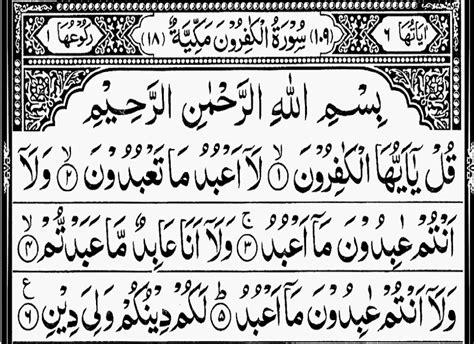 اٰیاتُهَا ٦ (١٠٩) سُوْرَةُ الْكٰفِرُوْنَ مَكِّیَّةٌ (١٨) رُكُوْعُهَا ١
بِسْمِ اللّٰهِ الرَّحْمٰنِ الرَّحِیْمِ
قُلْ یٰۤاَیُّهَا الْكٰفِرُوْنَ ۙ﴿١﴾ لَاۤ اَعْبُدُ مَا تَعْبُدُوْنَ ۙ﴿٢﴾ وَلَاۤ
اَنْتُمْ عٰبِدُوْنَ مَاۤ اَعْبُدُ ۚ﴿٣﴾ وَلَاۤ اَنَا عَابِدٌ مَّا عَبَدْتُّمْ ۙ﴿٤﴾
وَلَاۤ اَنْتُمْ عٰبِدُوْنَ مَاۤ اَعْبُدُ ؕ﴿٥﴾ لَكُمْ دِیْنُكُمْ وَلِیَ دِیْنِ ﴿٦﴾ ع